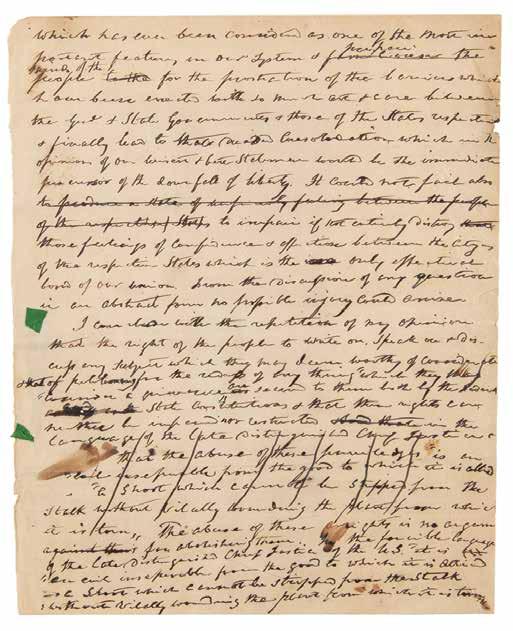 which has ever been considered as one of the most im
portant features in our system &
minds of the
people for the protection of the barriers which
have been erected with so much art & care between
the Genl & State Governments & those of the States respectively
& finally lead to that Consolidation which in the
opinion of our wisest & best Statesmen would be the immediate
precursor of the downfall of liberty. It could not fail also
to produce a state of unfriendly feeling between the people
of the respective States to impair if not entirely destroy
those feelings of confidence & affection between the Citizens
of the respective States which is the only effectual
bond of our union. From the discussion of any question
in an abstract form no possible injury could arise
I conclude with the repetition of my opinion
that the right of the people to write on, speak on or dis-
cuss any subject which they may deem worthy of consideration
& that of petitioning for the redress of any thing which they
consider a grievance are secured to them both by the
State Constitutions & that these rights can
neither be impaired nor restricted in the
language of the late distinguished Chief Justice
that the abuse of these privileges is an
evil inseparable from the good to which it is allied
"a Shoot which cannot be stripped from the
Stalk without vitally wounding the plant from which
it is torn" The abuse of these rights is no argument
against for abolishing them. In the forcible language
of the late distinguished Chief Justice of the U.S. "it is
"an evil inseparable from the good to which it is allied
a Shoot which cannot be stripped from the Stalk
without vitally wounding the plant from which it is torn